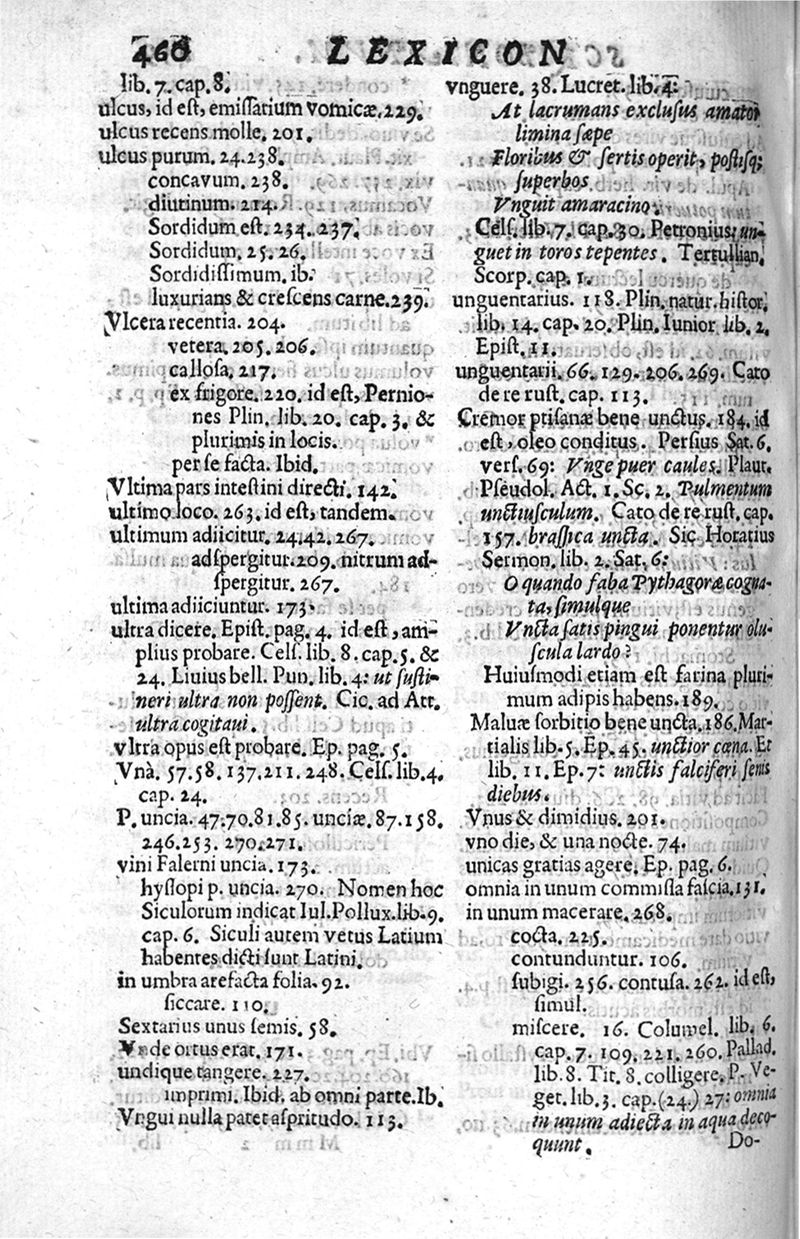 460 LEXICON
lib. 7. cap. 8.
ulcus, id eſt, emiſſarium vomicæ. 229.
ulcus recens molle. 201.
ulcus purum. 24. 238.
concavum. 238.
diutinum. 214.
Sordidum eſt. 234. 237.
Sordidum. 25. 26.
Sordidiſſimum. ib.
luxurians & creſcens carne. 239.
Vlcera recentia. 204.
vetera. 205. 206.
calloſa. 217.
ex frigore. 220. id eſt, Pernio-
nes Plin. lib. 20. cap. 3. &
plurimis in locis.
per ſe facta. Ibid.
Vltima pars inteſtini directi. 142.
ultimo loco. 263. id eſt, tandem.
ultimum adiicitur. 24. 42. 267.
adſpergitur. 209. nitrum ad-
ſpergitur. 267.
ultima adiiciuntur. 173.
ultra dicere. Epiſt. pag. 4. id eſt, am-
plius probare. Celſ. lib. 8. cap. 5. &
24. Liuius bell. Pun. lib. 4: ut ſuſti-
neri ultra non poſſent. Cic. ad Att.
ultra cogitaui.
vltra opus eſt probare. Ep. pag. 5.
Vnà. 57. 58. 137. 211. 248. Celſ. lib. 4.
cap. 24.
P. uncia. 47. 70. 81. 85. unciæ. 87. 158.
246. 253. 270. 271.
vini Falerni uncia. 173.
hyſſopi p. uncia. 270. Nomen hoc
Siculorum indicat Iul. Pollux. lib. 9.
cap. 6. Siculi autem vetus Latium
habentes dicti ſunt Latini.
in umbra arefacta folia. 92.
ſiccare. 110.
Sextarius unus ſemis. 58.
Vnde ortus erat. 171.
undique tangere. 227.
imprimi. Ibid. ab omni parte. Ib.
Vngui nulla patet aſpritudo. 113.
vnguere. 38. Lucret. lib. 4:
At lacrumans excluſus amator
limina ſæpe
Floribus & ſertis operit, poſtiſq;
ſuperbos
Vnguit amaracino.
Celſ. lib. 7. cap. 30. Petronius: un-
guet in toros tepentes. Tertullian.
Scorp. cap. 1.
unguentarius. 118. Plin. natur. hiſtor.
lib. 14. cap. 20. Plin. Iunior lib. 2.
Epiſt. 11.
unguentarii. 66. 129. 206. 269. Cato
de re ruſt. cap. 113.
Cremor ptiſanæ bene unctus. 184. id
eſt, oleo conditus. Perſius Sat. 6.
verſ. 69: Vnge puer caules. Plaut.
Pſeudol. Act. 1. Sc. 2. Pulmentum
unctiuſculum. Cato de re ruſt. cap.
157. braſſica uncta. Sic Horatius
Sermon. lib. 2. Sat. 6:
O quando faba Pythagoræ cogna-
ta, ſimulque
Vncta ſatis pingui ponentur olu-
ſcula lardo?
Huiuſmodi etiam eſt farina pluri-
mum adipis habens. 189.
Maluæ ſorbitio bene uncta. 186. Mar-
tialis lib. 5. Ep. 45. unctior cœna. Et
lib. 11. Ep. 7: unctis falciferi ſenis
diebus.
Vnus & dimidius. 201.
vno die, & una nocte. 74.
unicas gratias agere. Ep. pag. 6.
omnia in unum commiſſa faſcia. 131.
in unum macerare. 268.
cocta. 225.
contunduntur. 106.
ſubigi. 256. contuſa. 262. id eſt,
ſimul.
miſcere. 16. Columel. lib. 6.
cap. 7. 109. 221. 260. Pallad.
lib. 8. Tit. 8. colligere. P. Ve-
get. lib. 3. cap. (24.) 27: omnia
in unum adiecta in aqua deco-
quunt.
Do-